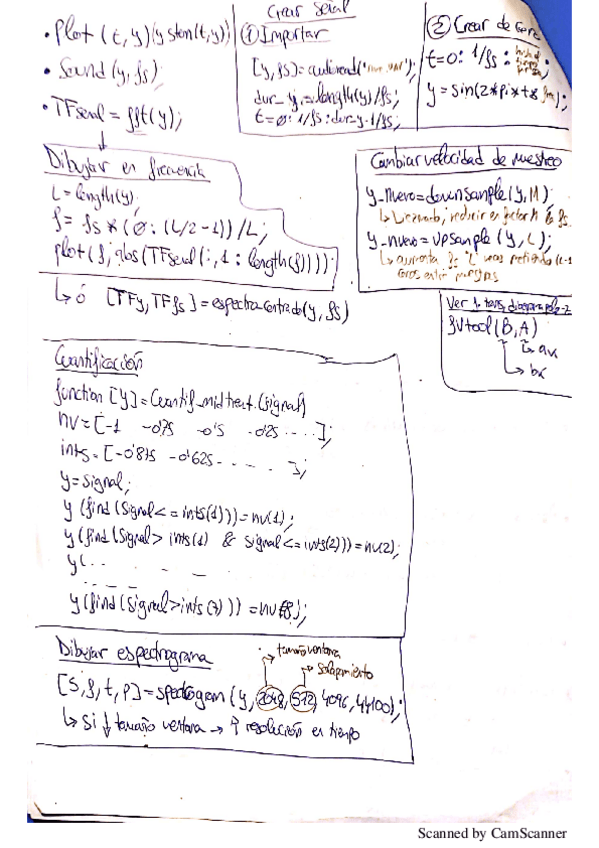 • Plot (t, y) (y stem(t, y))
• Sound (y, fs);
• TFsenal = fft(y);
Crear Señal
① Importar
[y, fs] = audioread(' .wav');
dur_y = length(y)/fs;
t = 0:1/fs:dur_y-1/fs;
② Crear de cero
t = 0:1/fs:
y = sin(2*pi*t* );
Dibujar en frecuencia
L = length(y);
f = fs*(0:(L/2-1))/L;
plot(f, abs(TFsenal(:,1:length(f))));
↳ ó [TFy, TFfs] = espectrocentrado(y, fs)
Cambiar velocidad de muestreo
y_nuevo = downsample(y, M)
↳ reducir en factor M la fs
y_nuevo = upsample(y, L);
↳ aumenta fs "L" (L-1
ceros entre muestras
Ver
fvtool(B, A)
↳ ak
↳ bk
Cuantificación
function [y] = Cuantif_midtreat(signal)
nv = [-1 -0'75 -0'5 -0'25 ....];
ints = [-0'875 -0'625 - . . - . . ];
y = signal;
y (find (Signal <= ints(1))) = nv(1);
y (find (Signal > ints(1) & signal <= ints(2))) = nv(2);
y(...
y (find (Signal > ints(7))) = nv(8);
Dibujar espectrograma
tamaño ventana
solapamiento
[S, f, t, p] = spectrogram (y, 2048, 512, 4096, 44100);
↳ Si ↓ tamaño ventana → ↑ resolución en tiempo
Scanned by CamScanner